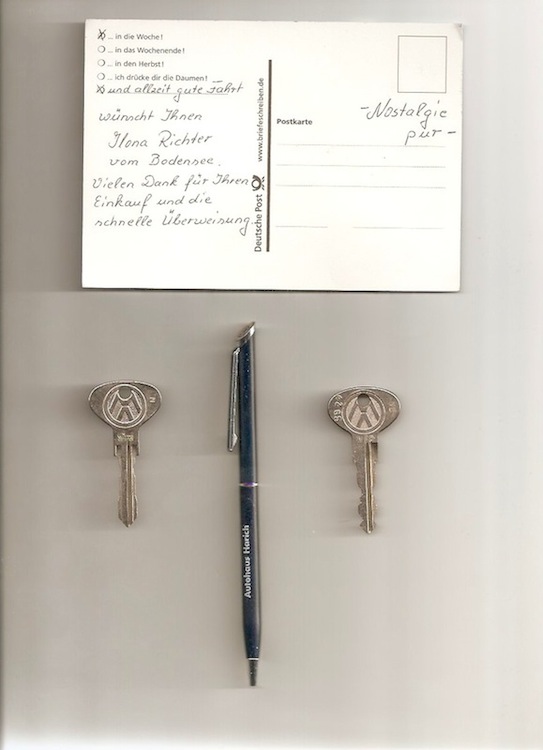 ... in die Woche!
... in das Wochenende!
... in den Herbst!
... ich drücke dir die Daumen!
und allzeit gute Fahrt
wünscht Ihnen
Ilona Richter
vom Bodensee.
Vielen Dank für Ihren
Einkauf und die
schnelle Überweisung.
Deutsche Post
www.briefeschreiben.de
Postkarte
-Nostalgie
pur-
VW
N
Autohaus Harich
VW